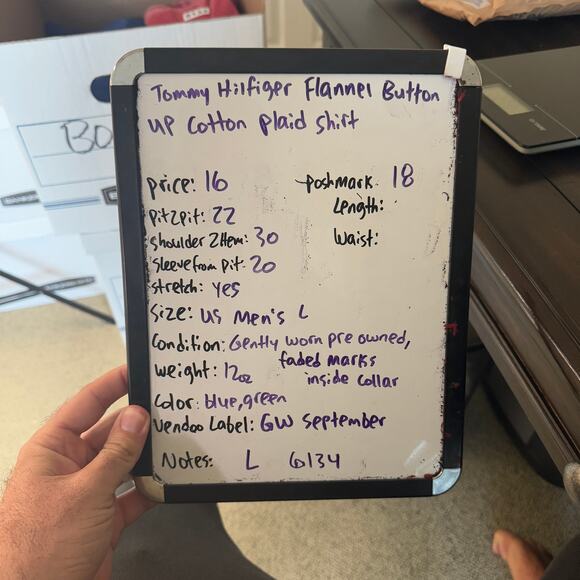 Tommy Hilfiger Flannel Button
up Cotton plaid shirt
price: 16
poshmark: 18
pit2pit: 22
Length:
shoulder 2 Hem: 30
Waist:
sleeve from pit: 20
stretch: yes
Size: US Men's L
Condition: Gently worn pre owned,
faded marks
inside collar
weight: 12oz
Color: blue, green
Vendoo Label: GW September
Notes: L
BO